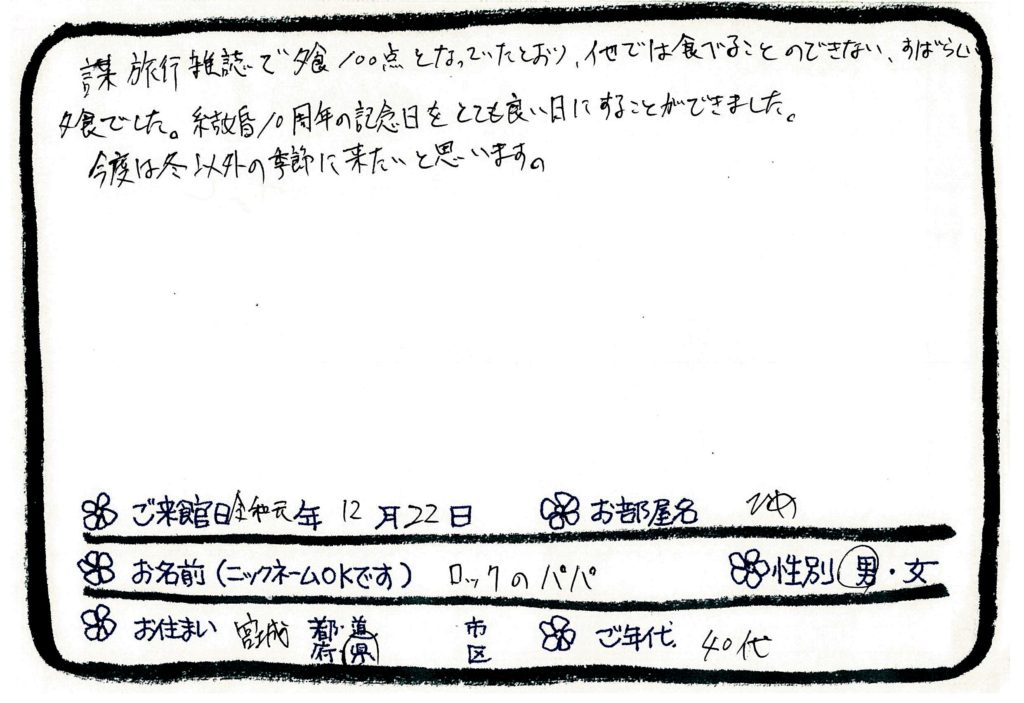 謀旅行雑誌で夕食100点となっていたとおり、他では食べることのできない、すばらしい
夕食でした。結婚10周年の記念日をとても良い日にすることができました。
今度は冬以外の季節に来たいと思います。
ご来館日 令和元年 12月22日 お部屋名 ひめ
お名前(ニックネームOKです) ロックのパパ 性別 男・女
お住まい 宮城 都・道 府・県 市 区 ご年代 40代